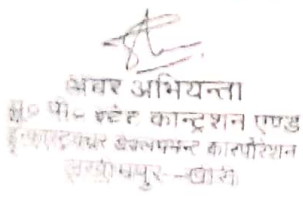 अवर अभियन्ता
यू० पी० स्टेट कान्ट्रशन एण्ड
इन्फ्रास्ट्रक्चर डेवलपमेन्ट कारपोरेशन
लखीमपुर--खीरी